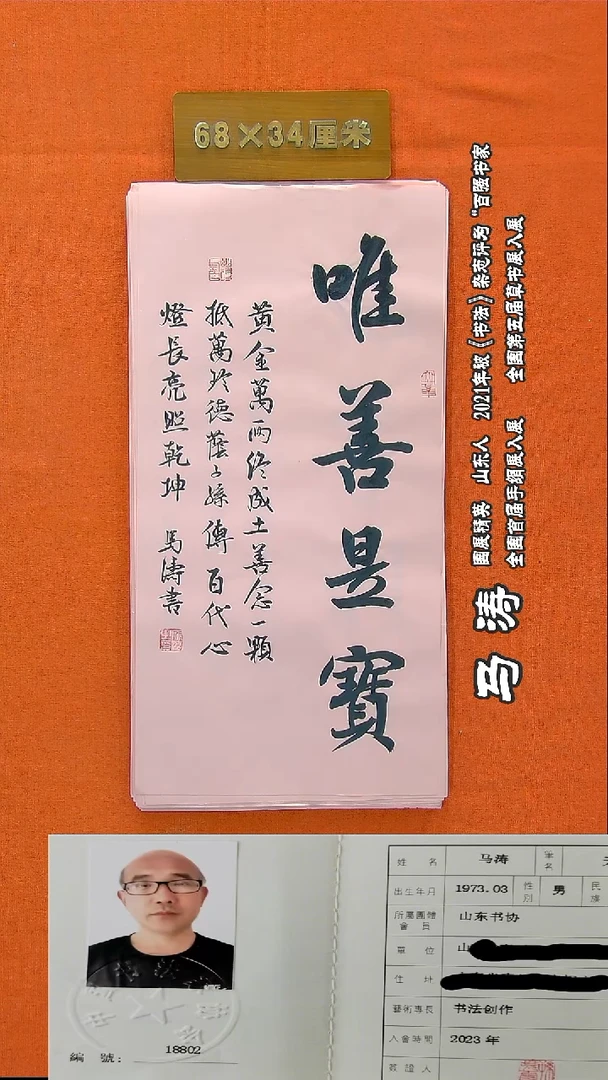 68×34厘米
唯善是寶
黄金萬兩终成土善念一顆
抵萬珍德蔭子孫傳百代心
燈長亮照乾坤 馬濤書
马涛
国展精英 山东人 2021年被《书法》杂志评为"百强书家
全国首届手卷展入展 全国第五届草书展入展
姓名 马涛 筆名
出生年月 1973.03 性别 男 民族
所屬團體會員 山东书协
單位 山
住址
藝術專長 书法创作
入會時間 2023年
簽證人
編號: 18802